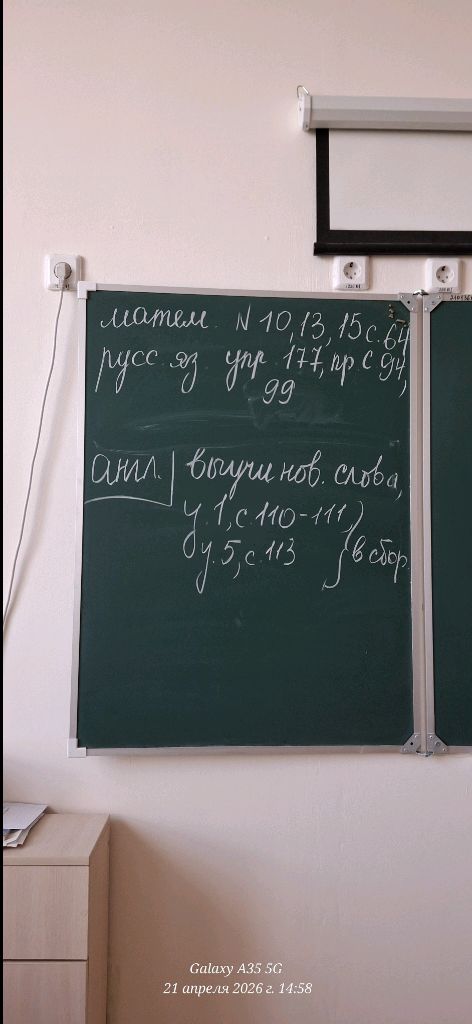 матем. N 10, 13, 15 с. 64
русс. яз. упр. 177, пр с 94,
99
англ. выучи нов. слова,
у.1, с.110-111
у.5, с.113 } в сбор.
Galaxy A35 5G
21 апреля 2026 г. 14:58